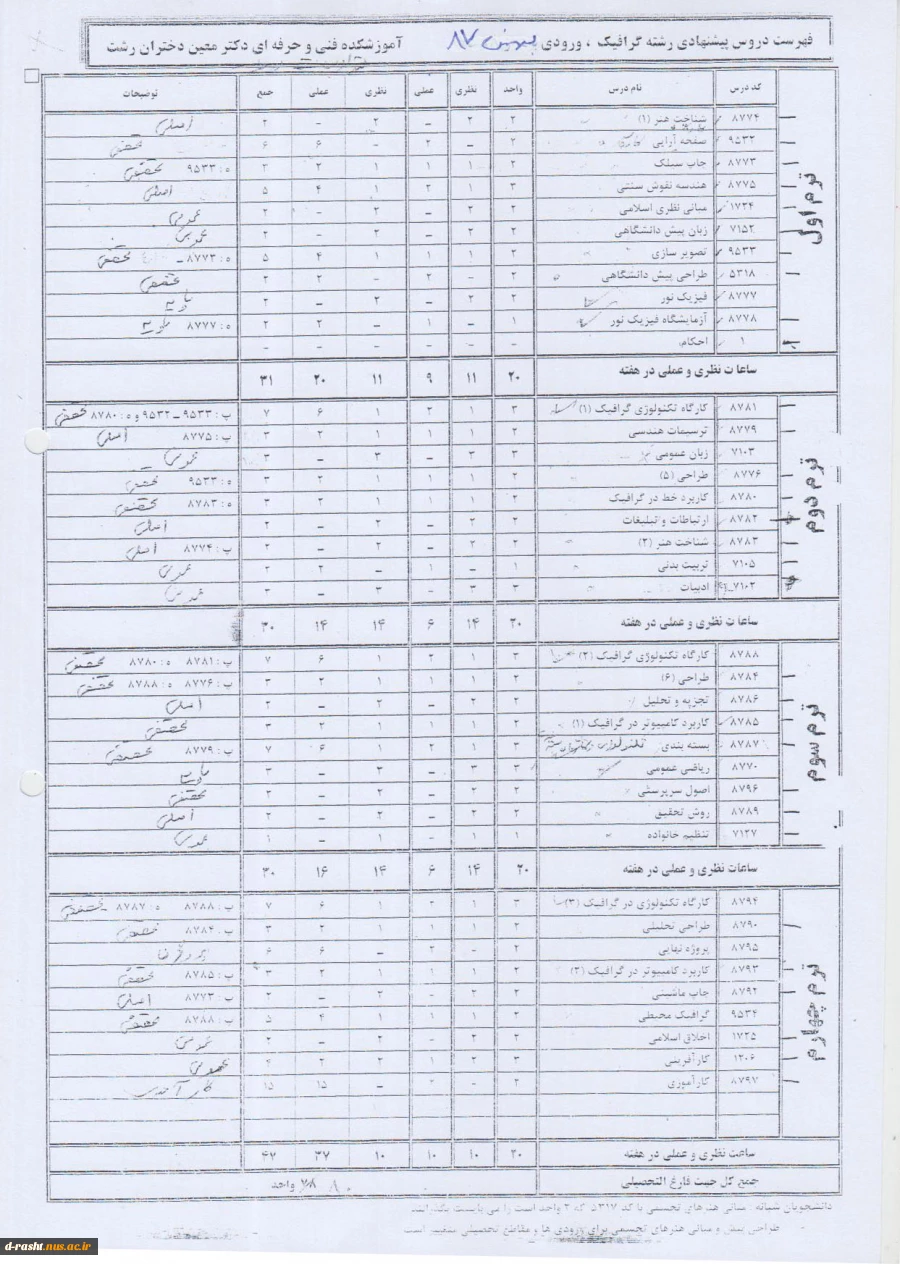 فهرست دروس پیشنهادی رشته گرافیک ، ورودی بهمن ۸۷ آموزشکده فنی و حرفه ای دکتر معین دختران رشت
کد درس نام درس واحد نظری عملی نظری عملی جمع توضیحات
ترم اول
۸۷۷۴ شناخت هنر (۱) ۲ ۲ – ۲ – ۲ اصلی
۹۵۳۲ صفحه آرایی ۲ – ۲ – ۶ ۶ تخصصی
۸۷۷۳ چاپ سیلک ۲ ۱ ۱ ۱ ۲ ۳ ه : ۹۵۳۳ تخصصی
۸۷۷۵ هندسه نقوش سنتی ۳ ۱ ۲ ۱ ۴ ۵ اصلی
۱۷۲۴ مبانی نظری اسلامی ۲ ۲ – ۲ – ۲ عمومی
۷۱۵۲ زبان پیش دانشگاهی ۲ ۲ – ۲ – ۲ عمومی
۹۵۳۳ تصویر سازی ۲ ۱ ۱ ۱ ۴ ۵ ه : ۸۷۷۳ تخصصی
۵۳۱۸ طراحی پیش دانشگاهی ۲ – ۲ – ۲ ۲ تخصصی
۸۷۷۷ فیزیک نور ۲ ۲ – ۲ – ۲ پایه
۸۷۷۸ آزمایشگاه فیزیک نور ۱ – ۱ – ۲ ۲ ه : ۸۷۷۷ پایه
۱ احکام – – – – – –
ساعات نظری و عملی در هفته ۲۰ ۱۱ ۹ ۱۱ ۲۰ ۳۱
ترم دوم
۸۷۸۱ کارگاه تکنولوژی گرافیک (۱) ۳ ۱ ۲ ۱ ۶ ۷ پ : ۹۵۳۳ – ۹۵۳۲ و ه : ۸۷۸۰ تخصصی
۸۷۷۹ ترسیمات هندسی ۲ ۱ ۱ ۱ ۲ ۳ پ : ۸۷۷۵ اصلی
۷۱۰۳ زبان عمومی ۳ ۳ – ۳ – ۳ عمومی
۸۷۷۶ طراحی (۵) ۲ ۱ ۱ ۱ ۲ ۳ ه : ۹۵۳۳ تخصصی
۸۷۸۰ کاربرد خط در گرافیک ۲ ۱ ۱ ۱ ۲ ۳ ه : ۸۷۸۳ تخصصی
۸۷۸۲ ارتباطات و تبلیغات ۲ ۲ – ۲ – ۲ اصلی
۸۷۸۳ شناخت هنر (۲) ۲ ۲ – ۲ – ۲ پ : ۸۷۷۴ اصلی
۷۱۰۵ تربیت بدنی ۱ – ۱ – ۲ ۲ عمومی
۷۱۰۲ ادبیات ۳ ۳ – ۳ – ۳ عمومی
ساعات نظری و عملی در هفته ۲۰ ۱۴ ۶ ۱۴ ۱۶ ۳۰
ترم سوم
۸۷۸۸ کارگاه تکنولوژی گرافیک (۲) ۳ ۱ ۲ ۱ ۶ ۷ پ : ۸۷۸۱ ه : ۸۷۸۰ تخصصی
۸۷۸۴ طراحی (۶) ۲ ۱ ۱ ۱ ۲ ۳ پ : ۸۷۷۶ ه : ۸۷۸۸ تخصصی
۸۷۸۶ تجزیه و تحلیل ۲ ۲ – ۲ – ۲ اصلی
۸۷۸۵ کاربرد کامپیوتر در گرافیک (۱) ۲ ۱ ۱ ۱ ۲ ۳ تخصصی
۸۷۸۷ بسته بندی ۳ ۱ ۲ ۱ ۶ ۷ پ : ۸۷۷۹ تخصصی
۸۷۷۰ ریاضی عمومی ۳ ۳ – ۳ – ۳ پایه
۸۷۹۶ اصول سرپرستی ۲ ۲ – ۲ – ۲ تخصصی
۸۷۸۹ روش تحقیق ۲ ۲ – ۲ – ۲ اصلی
۷۱۲۷ تنظیم خانواده ۱ ۱ – ۱ – ۱ عمومی
ساعات نظری و عملی در هفته ۲۰ ۱۴ ۶ ۱۴ ۱۶ ۳۰
ترم چهارم
۸۷۹۴ کارگاه تکنولوژی در گرافیک (۳) ۳ ۱ ۲ ۱ ۶ ۷ پ : ۸۷۸۸ ه : ۸۷۸۷ تخصصی
۸۷۹۰ طراحی تحلیلی ۲ ۱ ۱ ۱ ۲ ۳ پ : ۸۷۸۴ تخصصی
۸۷۹۵ پروژه نهایی ۲ – ۲ – ۶ ۶
۸۷۹۳ کاربرد کامپیوتر در گرافیک (۲) ۲ ۱ ۱ ۱ ۲ ۳ پ : ۸۷۸۵ تخصصی
۸۷۹۲ چاپ ماشینی ۲ ۲ – ۲ – ۲ پ : ۸۷۷۳ اصلی
۹۵۳۴ گرافیک محیطی ۲ ۱ ۱ ۱ ۴ ۵ پ : ۸۷۸۸ تخصصی
۱۷۲۵ اخلاق اسلامی ۲ ۲ – ۲ – ۲ عمومی
۱۲۰۶ کارآفرینی ۳ ۲ ۱ ۲ ۲ ۴ عمومی
۸۷۹۷ کارآموزی ۲ – ۲ – ۱۵ ۱۵ کارآموزی
ساعت نظری و عملی در هفته ۲۰ ۱۰ ۱۰ ۱۰ ۳۷ ۴۷
جمع کل جهت فارغ التحصیلی ۸۰ واحد
دانشجویان شبانه ، مبانی هنرهای تجسمی با کد ۵۳۱۷ که ۲ واحد است را می بایست بگذرانند
- طراحی پیش و مبانی هنرهای تجسمی برای ورودی ها و مقاطع تحصیلی متغیر است
d-rasht.nus.ac.ir